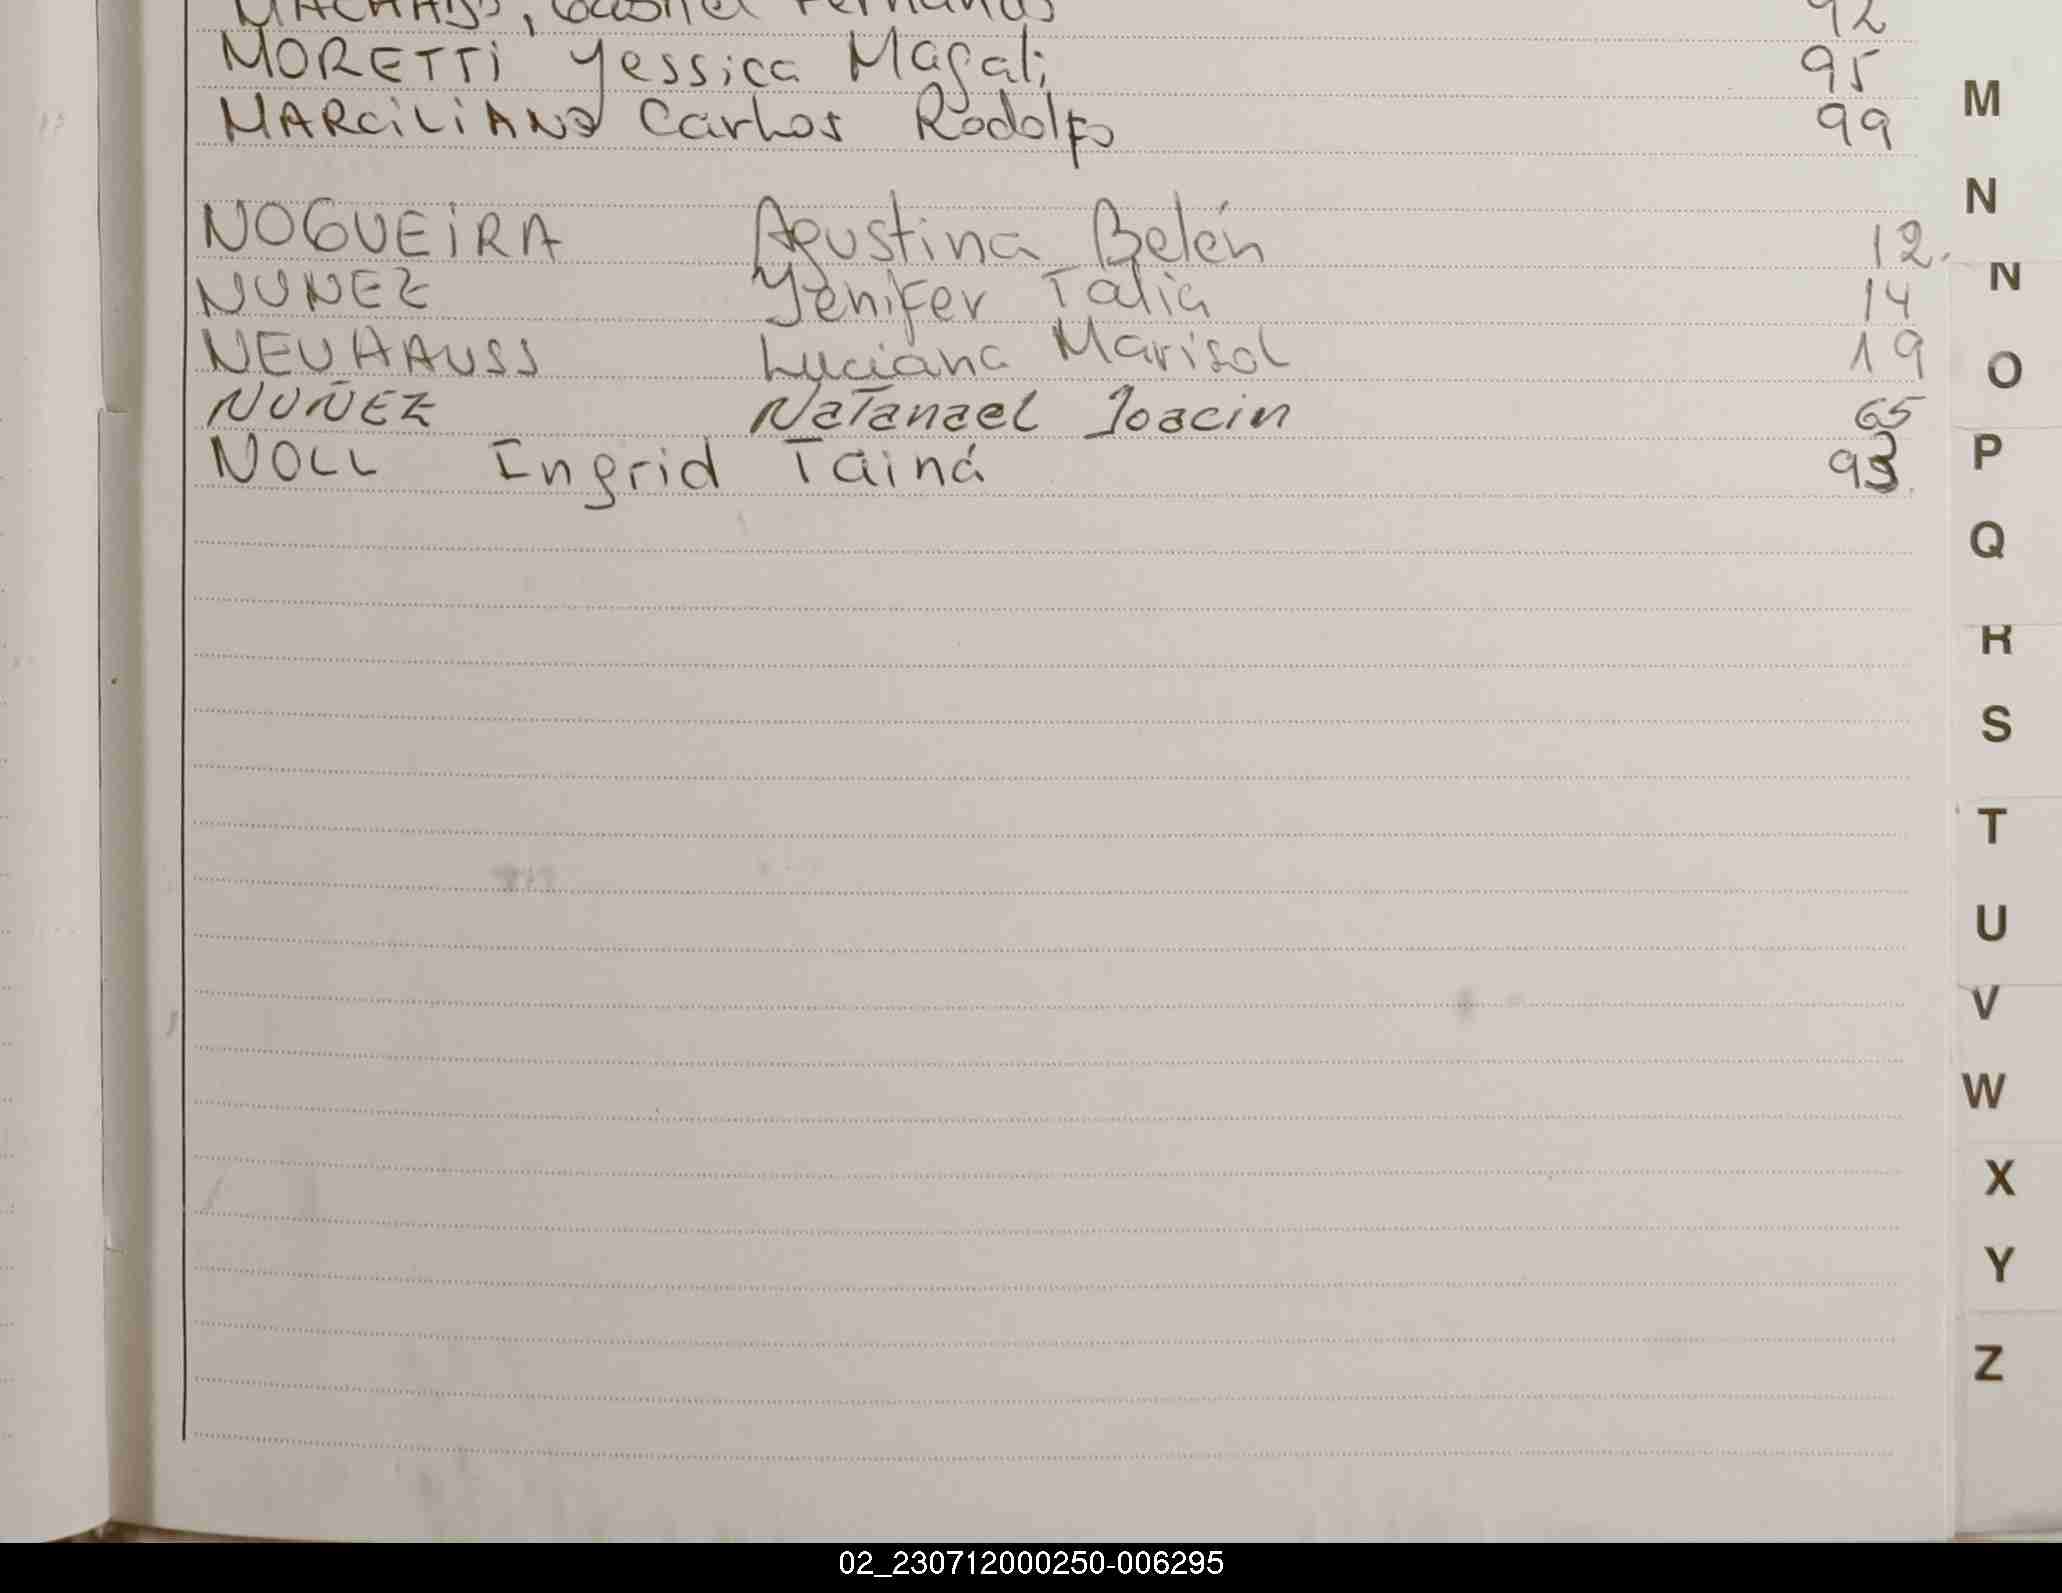 MACHADO, Gabriel Fernando 92
MORETTI Yessica Magali 95
MARCILIANO Carlos Rodolfo 99
NOGUEIRA Agustina Belén 12.
NUNEZ Yenifer Talia 14
NEUHAUSS Luciana Marisol 19
NUÑEZ Natanael Joacin 65
NOLL Ingrid Tainá 93.
M
N
N
O
P
Q
R
S
T
U
V
W
X
Y
Z
02_230712000250-006295